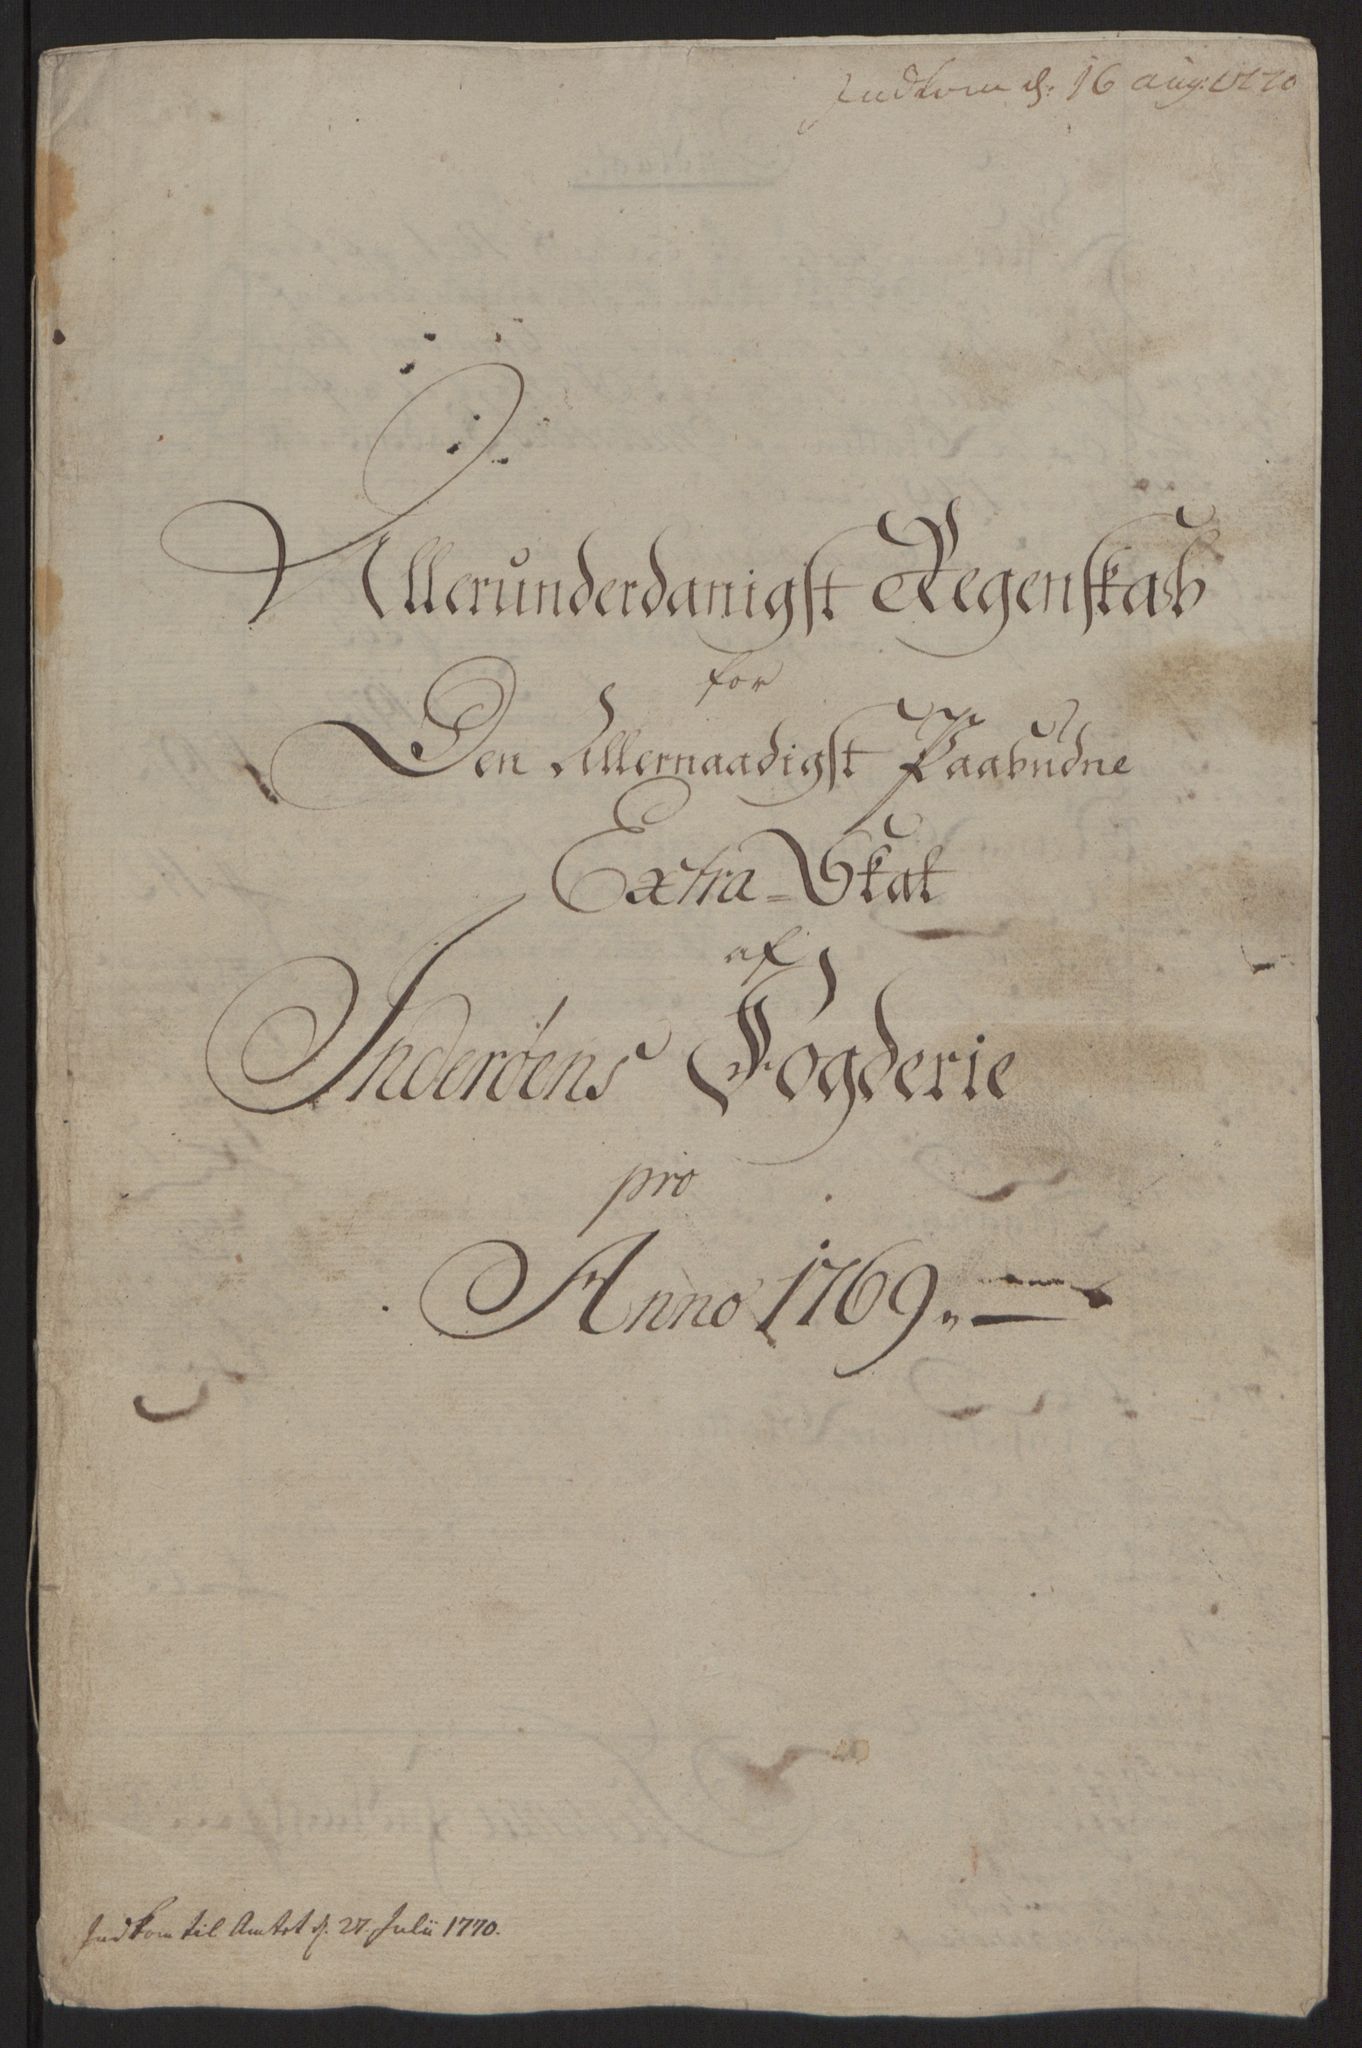 Indkom d: 16 aug: 1770
Allerunderdanigst Regenskab
for
Den Allernaadigst Paabudne
Extra-Skat
af
Inderöens Fogderie
pro
Anno 1769.
Indkom til Amtet d. 27. Julii 1770.